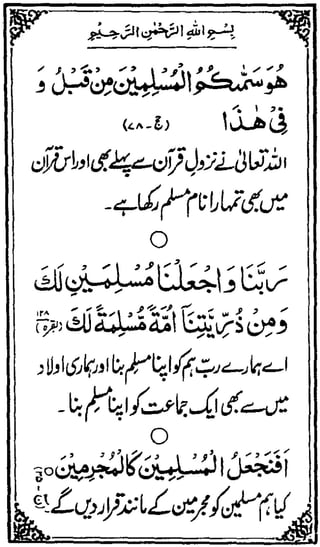 بِسْمِ اللهِ الرَّحْمٰنِ الرَّحِيْمِ
هُوَ سَمّٰىكُمُ الْمُسْلِمِيْنَ مِنْ قَبْلُ وَ
فِيْ هٰذَا (حج-٧٨)
اللہ تعالیٰ نے نزولِ قرآن سے پہلے بھی اور اس قرآن
میں بھی تمہارا نام مسلم رکھا ہے۔
رَبَّنَا وَاجْعَلْنَا مُسْلِمَيْنِ لَكَ
وَمِنْ ذُرِّيَّتِنَا اُمَّةً مُّسْلِمَةً لَّكَ (بقرہ ١٢٨)
اے ہمارے ربّ ہم کو اپنا مسلم بنا اور ہماری اولاد
میں سے بھی ایک جماعت کو اپنا مسلم بنا۔
اَفَنَجْعَلُ الْمُسْلِمِيْنَ كَالْمُجْرِمِيْنَ
کیا ہم مسلمین کو مجرمین کے مانند قرار دیں گے